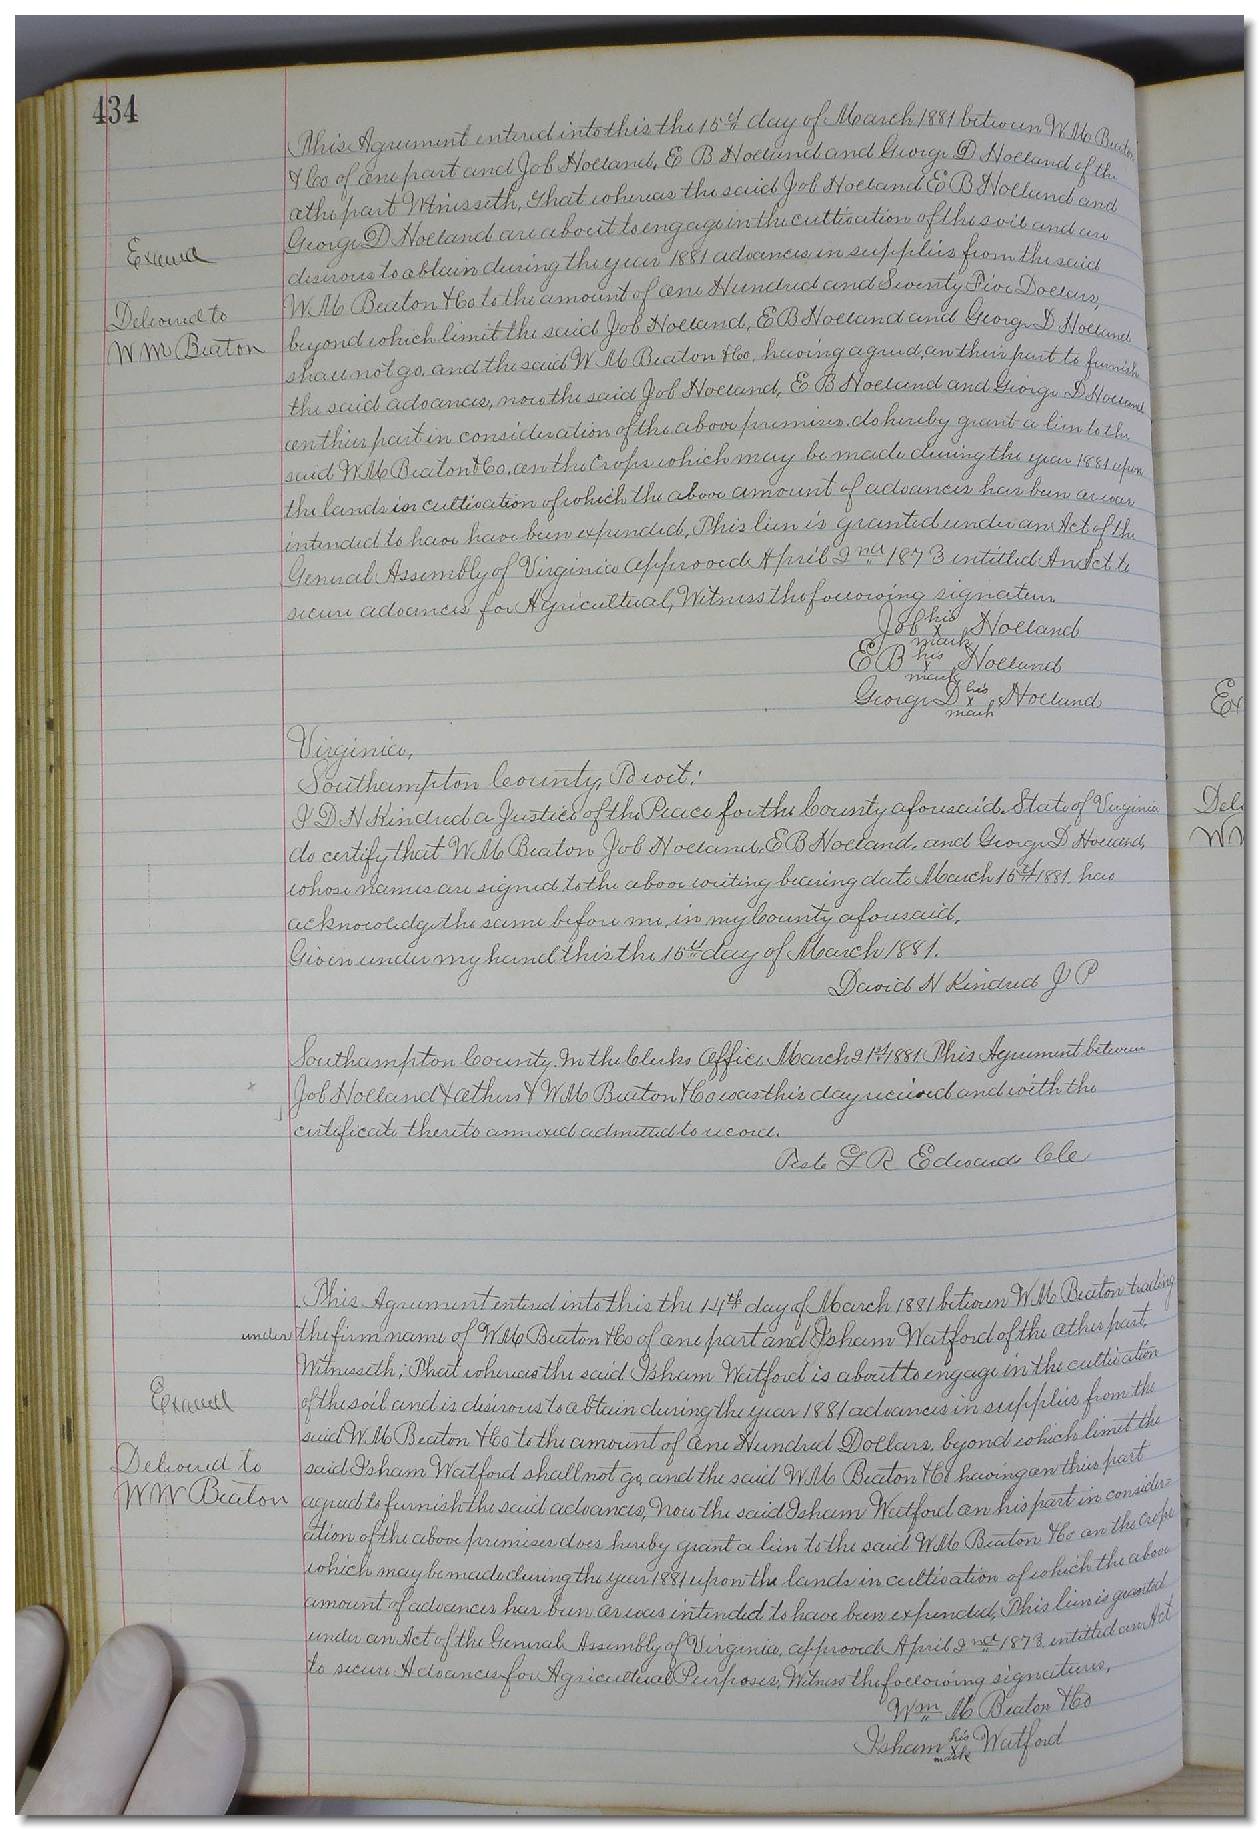 434
This Agreement entered into this the 15th day of March 1881 between W M Beaton
& Co of one part and Job Holland, E B Holland and George D Holland of the
othe part Witnesseth, That whereas the said Job Holland E B Holland and
George D Holland are about to engage in the cultivation of the soil and are
Exained
desirous to obtain during the year 1881 advances in supplies from the said
W M Beaton & Co to the amount of one Hundred and Seventy Five Dollars,
Delivered to
beyond which limit the said Job Holland, E B Holland and George D Holland
W M Beaton
shall not go, and the said W M Beaton & Co, having agreed, on their part to furnish
the said advances, now the said Job Holland, E B Holland and George D Holland
on thier part in consideration of the above premises, do hereby grant a lien to the
said W M Beaton & Co, on the Crops which may be made during the year 1881 upon
the lands in cultivation of which the above amount of advances has been or was
intended to have have been expended, This lien is granted under an Act of the
General Assembly of Virginia approved April 2nd 1873 entitled An Act to
secure advances for Agricultural, Witness the following signatures
Job his x mark Holland
E B his x mark Holland
George D his x mark Holland
Virginia,
Southampton County, To wit:
I D N Kindred a Justice of the Peace for the County aforesaid, State of Virginia
do certify that W M Beaton Job Holland, E B Holland, and George D Holland,
whose names are signed to the above writing bearing date March 15th 1881, has
acknowledge the same before me, in my County aforesaid,
Given under my hand this the 15th day of March 1881.
David N Kindred J P
Southampton County. In the Clerks Office March 21st 1881 This Agreement between
Job Holland & others & W M Beaton & Co was this day received and with the
certificate thereto annexed admitted to record.
Teste L R Edwards Clc
This Agreement entered into this the 14th day of March 1881 between W M Beaton trading
under the firm name of W M Beaton & Co of one part and Isham Watford of the other part,
Witnesseth; That whereas the said Isham Watford is about to engage in the cultivation
Exained
of the soil and is desirous to obtain during the year 1881 advances in supplies from the
said W M Beaton & Co to the amount of One Hundred Dollars, beyond which limit the
Delivered to
said Isham Watford shall not go, and the said W M Beaton & Co having on thier part
W W Beaton
agreed to furnish the said advances, Now the said Isham Watford on his part in consider=
ation of the above premises does hereby grant a lien to the said W M Beaton & Co on the crops
which may be made during the year 1881 upon the lands in cultivation of which the above
amount of advances has been or was intended to have been expended, This lien is granted
under an Act of the General Assembly of Virginia, approved April 2nd 1873 entitled an Act
to secure Advances for Agricultural Purposes, Witness the following signatures,
Wm M Beaton & Co
Isham his x mark Watford
Ex
Deli
W